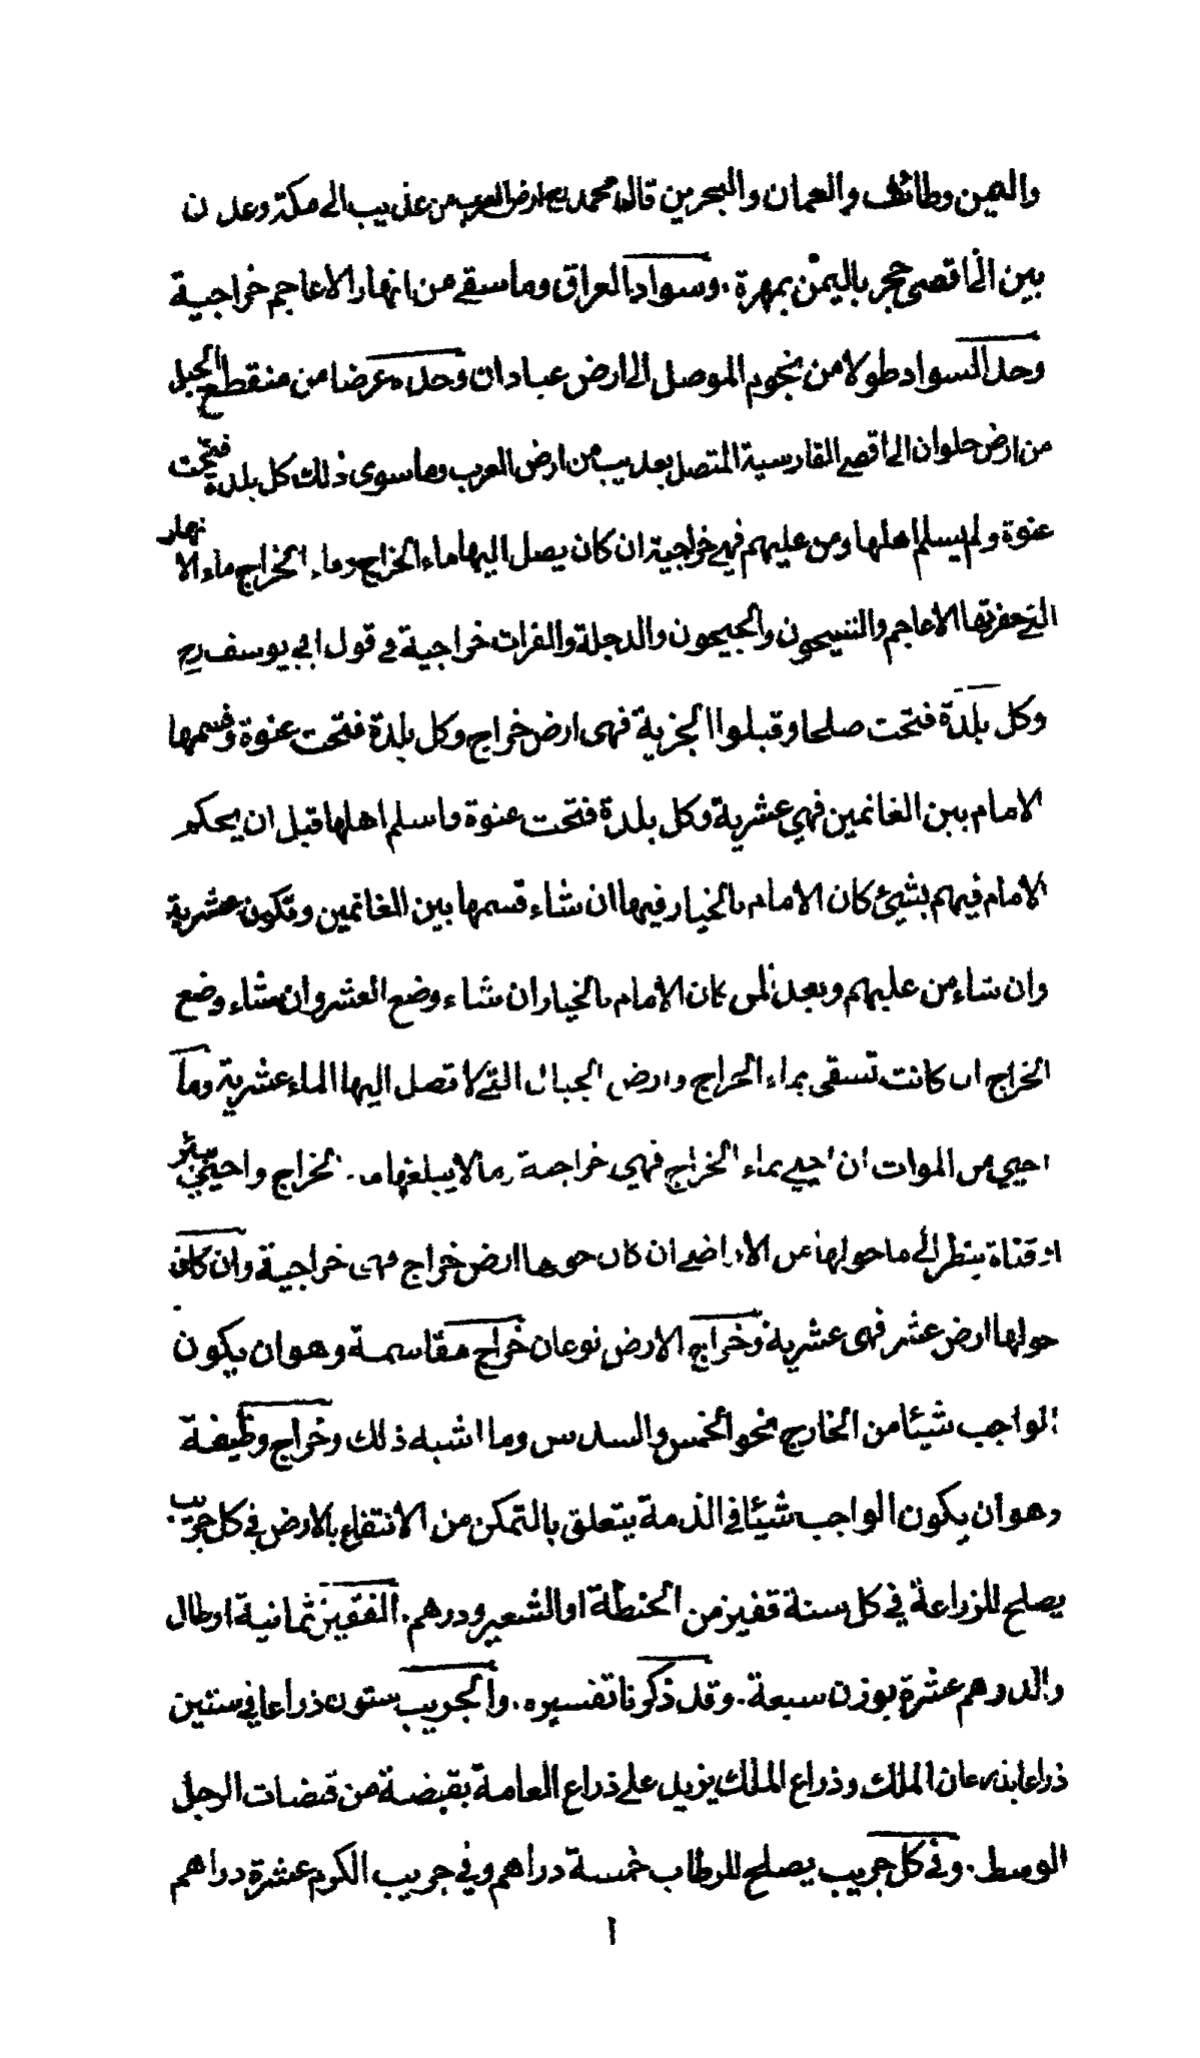 واليمن وطائف والعمان والبحرين قال محمد رح ارض العرب من عذيب الى مكة وعدن
بين الى اقصى حجر باليمن بمهرة . وسواد العراق وما سقى من انهار الاعاجم خراجية
وحد السواد طولا من تخوم الموصل الى ارض عبادان وحده عرضا من منقطع الجبل
من ارض حلوان الى اقصى القادسية المتصل بعذيب من ارض العرب وما سوى ذلك كل بلدة فتحت
عنوة ولم يسلم اهلها ومن عليهم فهى خراجية ان كان يصل اليها ماء الخراج وماء الخراج ماء الانهار
التى حفرتها الاعاجم والسيحون والجيحون والدجلة والفرات خراجية فى قول ابى يوسف رح
وكل بلدة فتحت صلحا وقبلوا الجزية فهى ارض خراج وكل بلدة فتحت عنوة وقسمها
الامام بين الغانمين فهي عشرية وكل بلدة فتحت عنوة واسلم اهلها قبل ان يحكم
الامام فيهم بشئ كان الامام بالخيار فيها ان شاء قسمها بين الغانمين وتكون عشرية
وان شاء من عليهم وبعد المن كان الامام بالخيار ان شاء وضع العشر وان شاء وضع
الخراج ان كانت تسقى بماء الخراج وارض الجبال التى لا تصل اليها الماء عشرية وما
احيي من الموات ان احيى بماء الخراج فهي خراجية وما لا يبلغها ماء الخراج واحيى ببئر
او قناة ينظر الى ما حولها من الاراضى ان كان حولها ارض خراج فهى خراجية وان كان
حولها ارض عشر فهى عشرية وخراج الارض نوعان خراج مقاسمة وهو ان يكون
الواجب شيئا من الخارج نحو الخمس والسدس وما اشبه ذلك وخراج وظيفة
وهو ان يكون الواجب شيئا في الذمة يتعلق بالتمكن من الانتفاع بالارض في كل جريب
يصلح للزراعة في كل سنة قفيز من الحنطة او الشعير ودرهم . القفيز ثمانية ارطال
والدرهم عشرة بوزن سبعة . وقد ذكرنا تفسيره . والجريب ستون ذراعا في ستين
ذراعا بذرعان الملك وذراع الملك يزيد على ذراع العامة بقبضة من قبضات الرجل
الوسط . وفى كل جريب يصلح للرطاب خمسة دراهم وفي جريب الكرم عشرة دراهم
ا